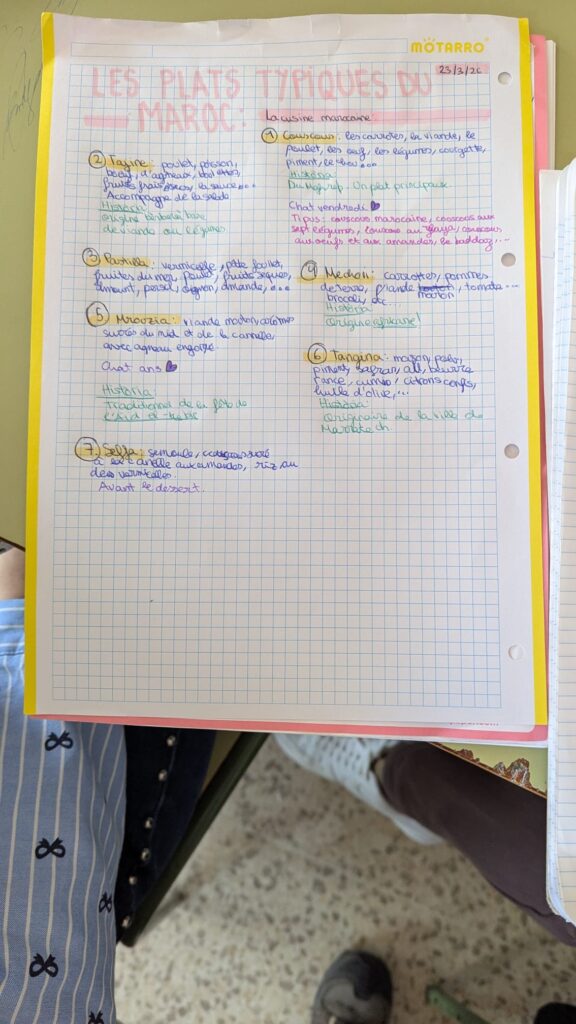 MOTARRO
23/3/26
LES PLATS TYPIQUES DU
MAROC:
La cuisine marocaine
① Couscous: les carottes, la viande, le
poulet, les oeuf, les légumes, courgette,
piment, le chou...
História
Un plat principaux
Chat vendredi
Tipus: couscous marocaine, couscous aux
sept légumes, couscous au couscous
aux oeufs et aux amandes, le baddaz,...
② Tajine: poulet, poisson,
boeuf, d'agneaux,
fruits frais la sauce...
Accompagne de la salade
História
origine berbère, base
de viande ou légumes
③ Pastilla: vermicelle, pâte
fruites du mer, poulet, fruits
persil, oignon, amande,...
④ Mechoui: carottes, pommes
de terre, viande mouton, tomate...
brocoli, etc.
História
Origine africane
⑤ Mrouzia: viande mouton
sucrés du miel et de la cannelle
avec agneau
Chat ans
História
Traditionnel de la fête de
l'Aid
⑥ Tangina:
piment, safran, all, beurre
rance, cumin, citrons confs,
huile d'olive,...
História:
Originaire de la ville de
Marrakech.
⑦ Seffa: semoule, sucré
à la canelle aux amandes, riz ou
des vermicelles.
Avant le dessert.